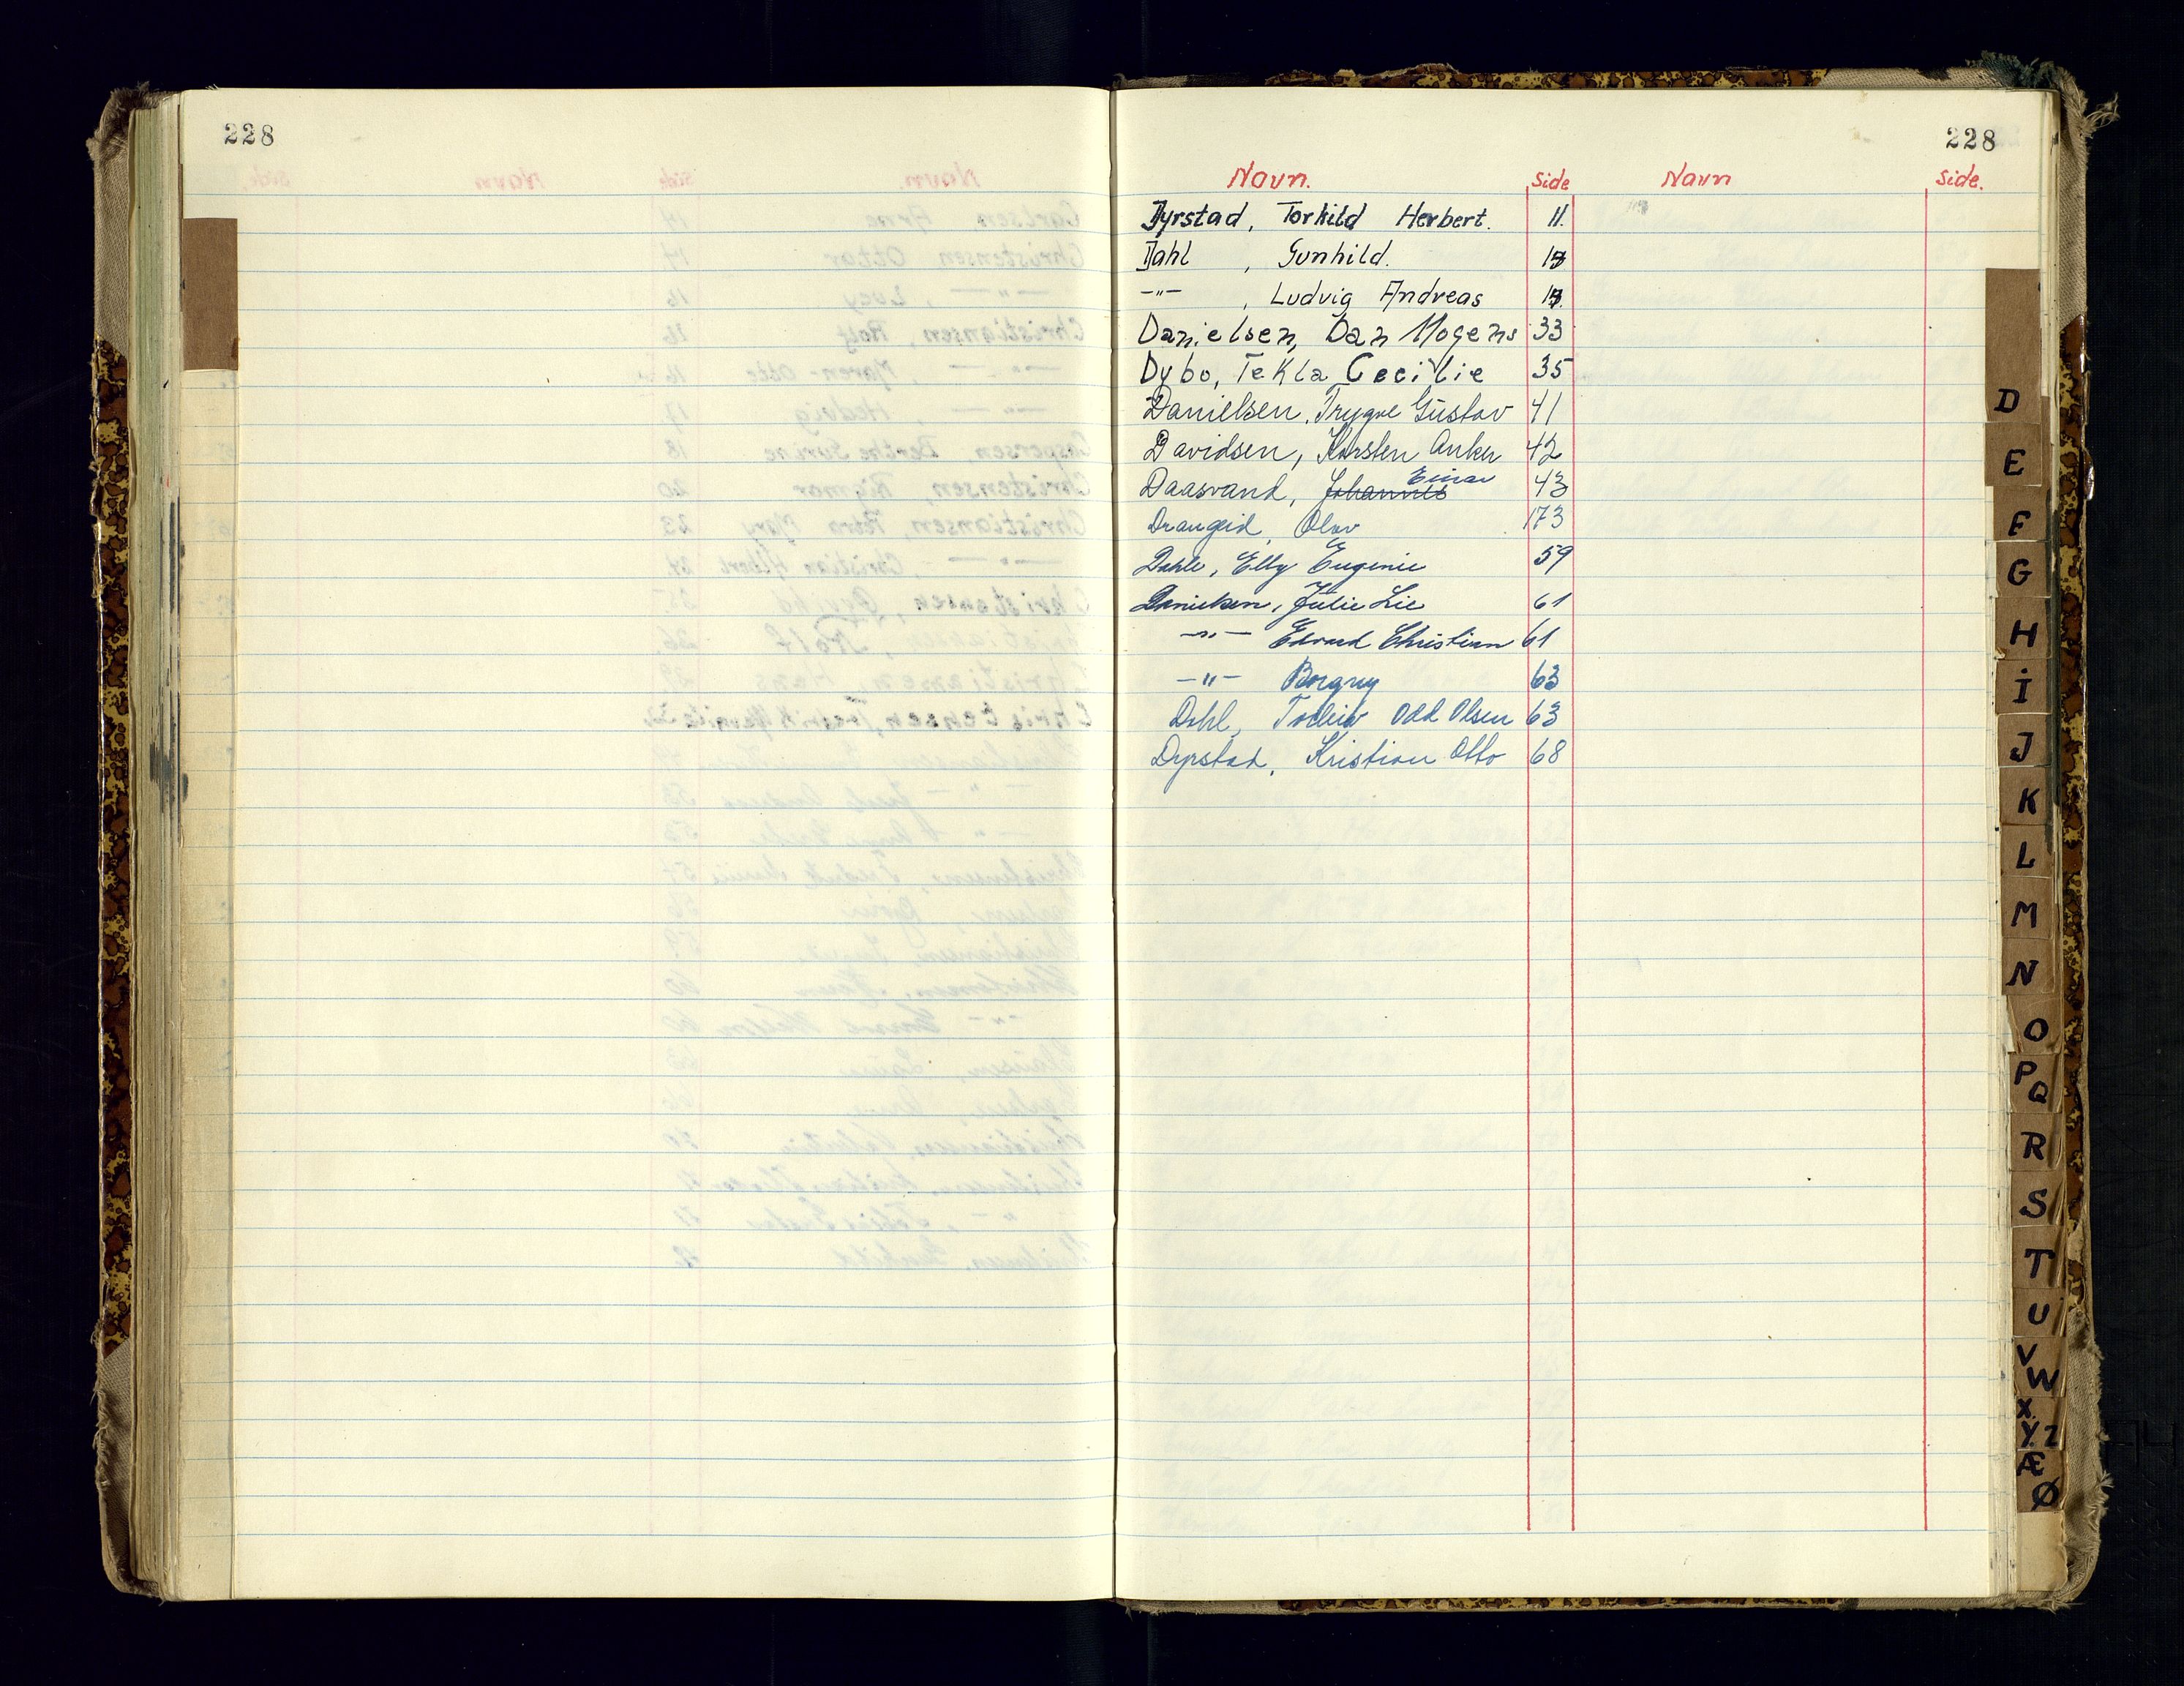 228
228
Navn. Side Navn Side.
Dyrstad, Torkild Herbert. 11.
Dahl , Gunhild.
-"- , Ludvig Andreas
Danielsen, Dan Mogens 33
Dybo, Tekla Cecilie 35
Danielsen, Trygve Gustav 41
Davidsen, Karsten Anker 42
Daasvand, Johannes Einar 43
Draugeid, Olav 173
Dahle, Elly Eugenie 59
Danielsen, Julie Lie 61
-"- Edvard Christian 61
-"- Borgny 63
Dahl, Tolleiv Odd Olsen 63
Dyrstad, Kristian Otto 68
D
E
F
G
H
I
J
K
L
M
N
O
P
Q
R
S
T
U
V
W
X.
Y. Z
Æ
Ø